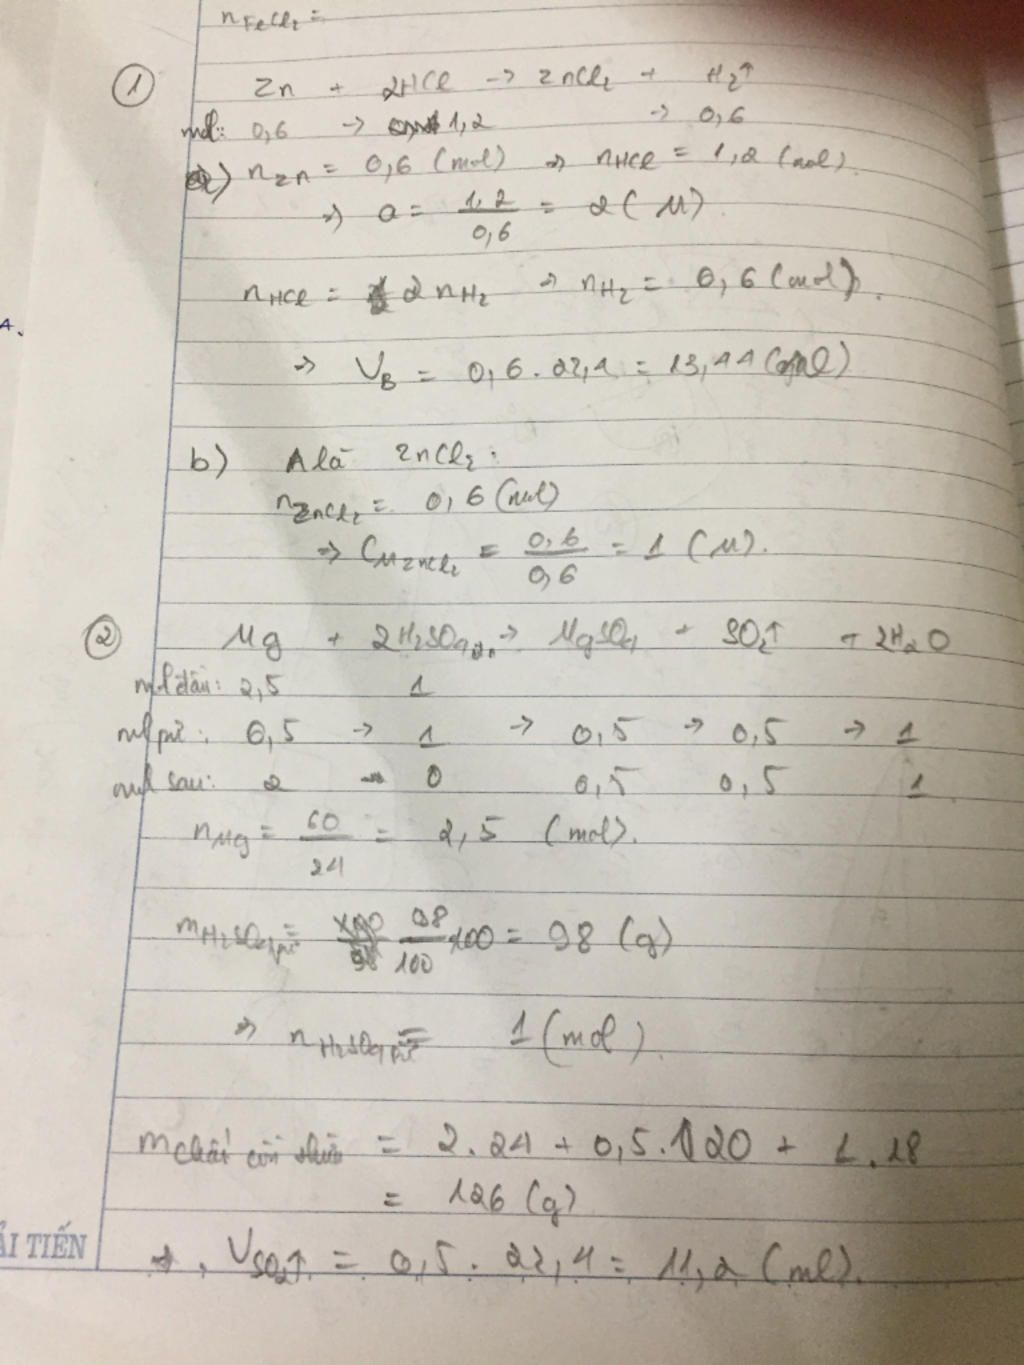 nFeCl2 =
① Zn + 2HCl → ZnCl2 + H2↑
mol: 0,6 → 1,2 → 0,6
a) nZn = 0,6 (mol) ⇒ nHCl = 1,2 (mol).
⇒ a = 1,2/0,6 = 2 (M)
nHCl = 2 nH2 ⇒ nH2 = 0,6 (mol).
A.
⇒ VB = 0,6 . 22,4 = 13,44 (ml)
b) A là ZnCl2:
nZnCl2 = 0,6 (mol)
⇒ CM ZnCl2 = 0,6/0,6 = 1 (M).
② Mg + 2H2SO4 → MgSO4 + SO2↑ + 2H2O
mol đầu: 2,5 1
mol pứ: 0,5 → 1 → 0,5 → 0,5 → 1
mol sau: 2 0 0,5 0,5 1
nMg = 60/24 = 2,5 (mol).
mH2SO4 pứ = 98/100 . 100 = 98 (g)
⇒ nH2SO4 pứ = 1 (mol).
m chất còn = 2.24 + 0,5.120 + 1.18
= 126 (g)
ẢI TIẾN
VSO2↑ = 0,5 . 22,4 = 11,2 (ml).